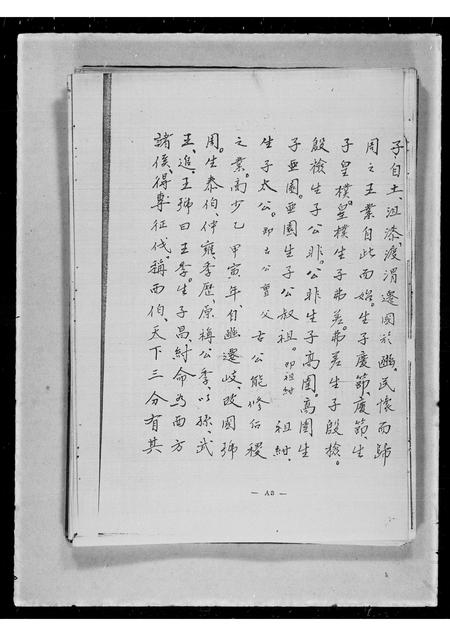 子自土、沮漆、渡渭遷國於豳。民懷而歸
周之王業自此而始。生子慶節、慶節、生
子皇樸。皇樸生子弗差。弗差生子殷檢。
殷檢生子公非。公非生子高圉。高圉生
子亜圉。亜圉生子公叔祖。即祖紺 祖紺、
生子太公。即古公亶父 古公能修后稷
之業。商少乙甲寅年、自豳遷岐、改國號
周。生泰伯、仲雍季歷、原稱公季、以孫、武
王、追、王號曰王季。生子昌、紂命為西方
諸侯、得專征伐、稱西伯、天下三分有其
— A3 —